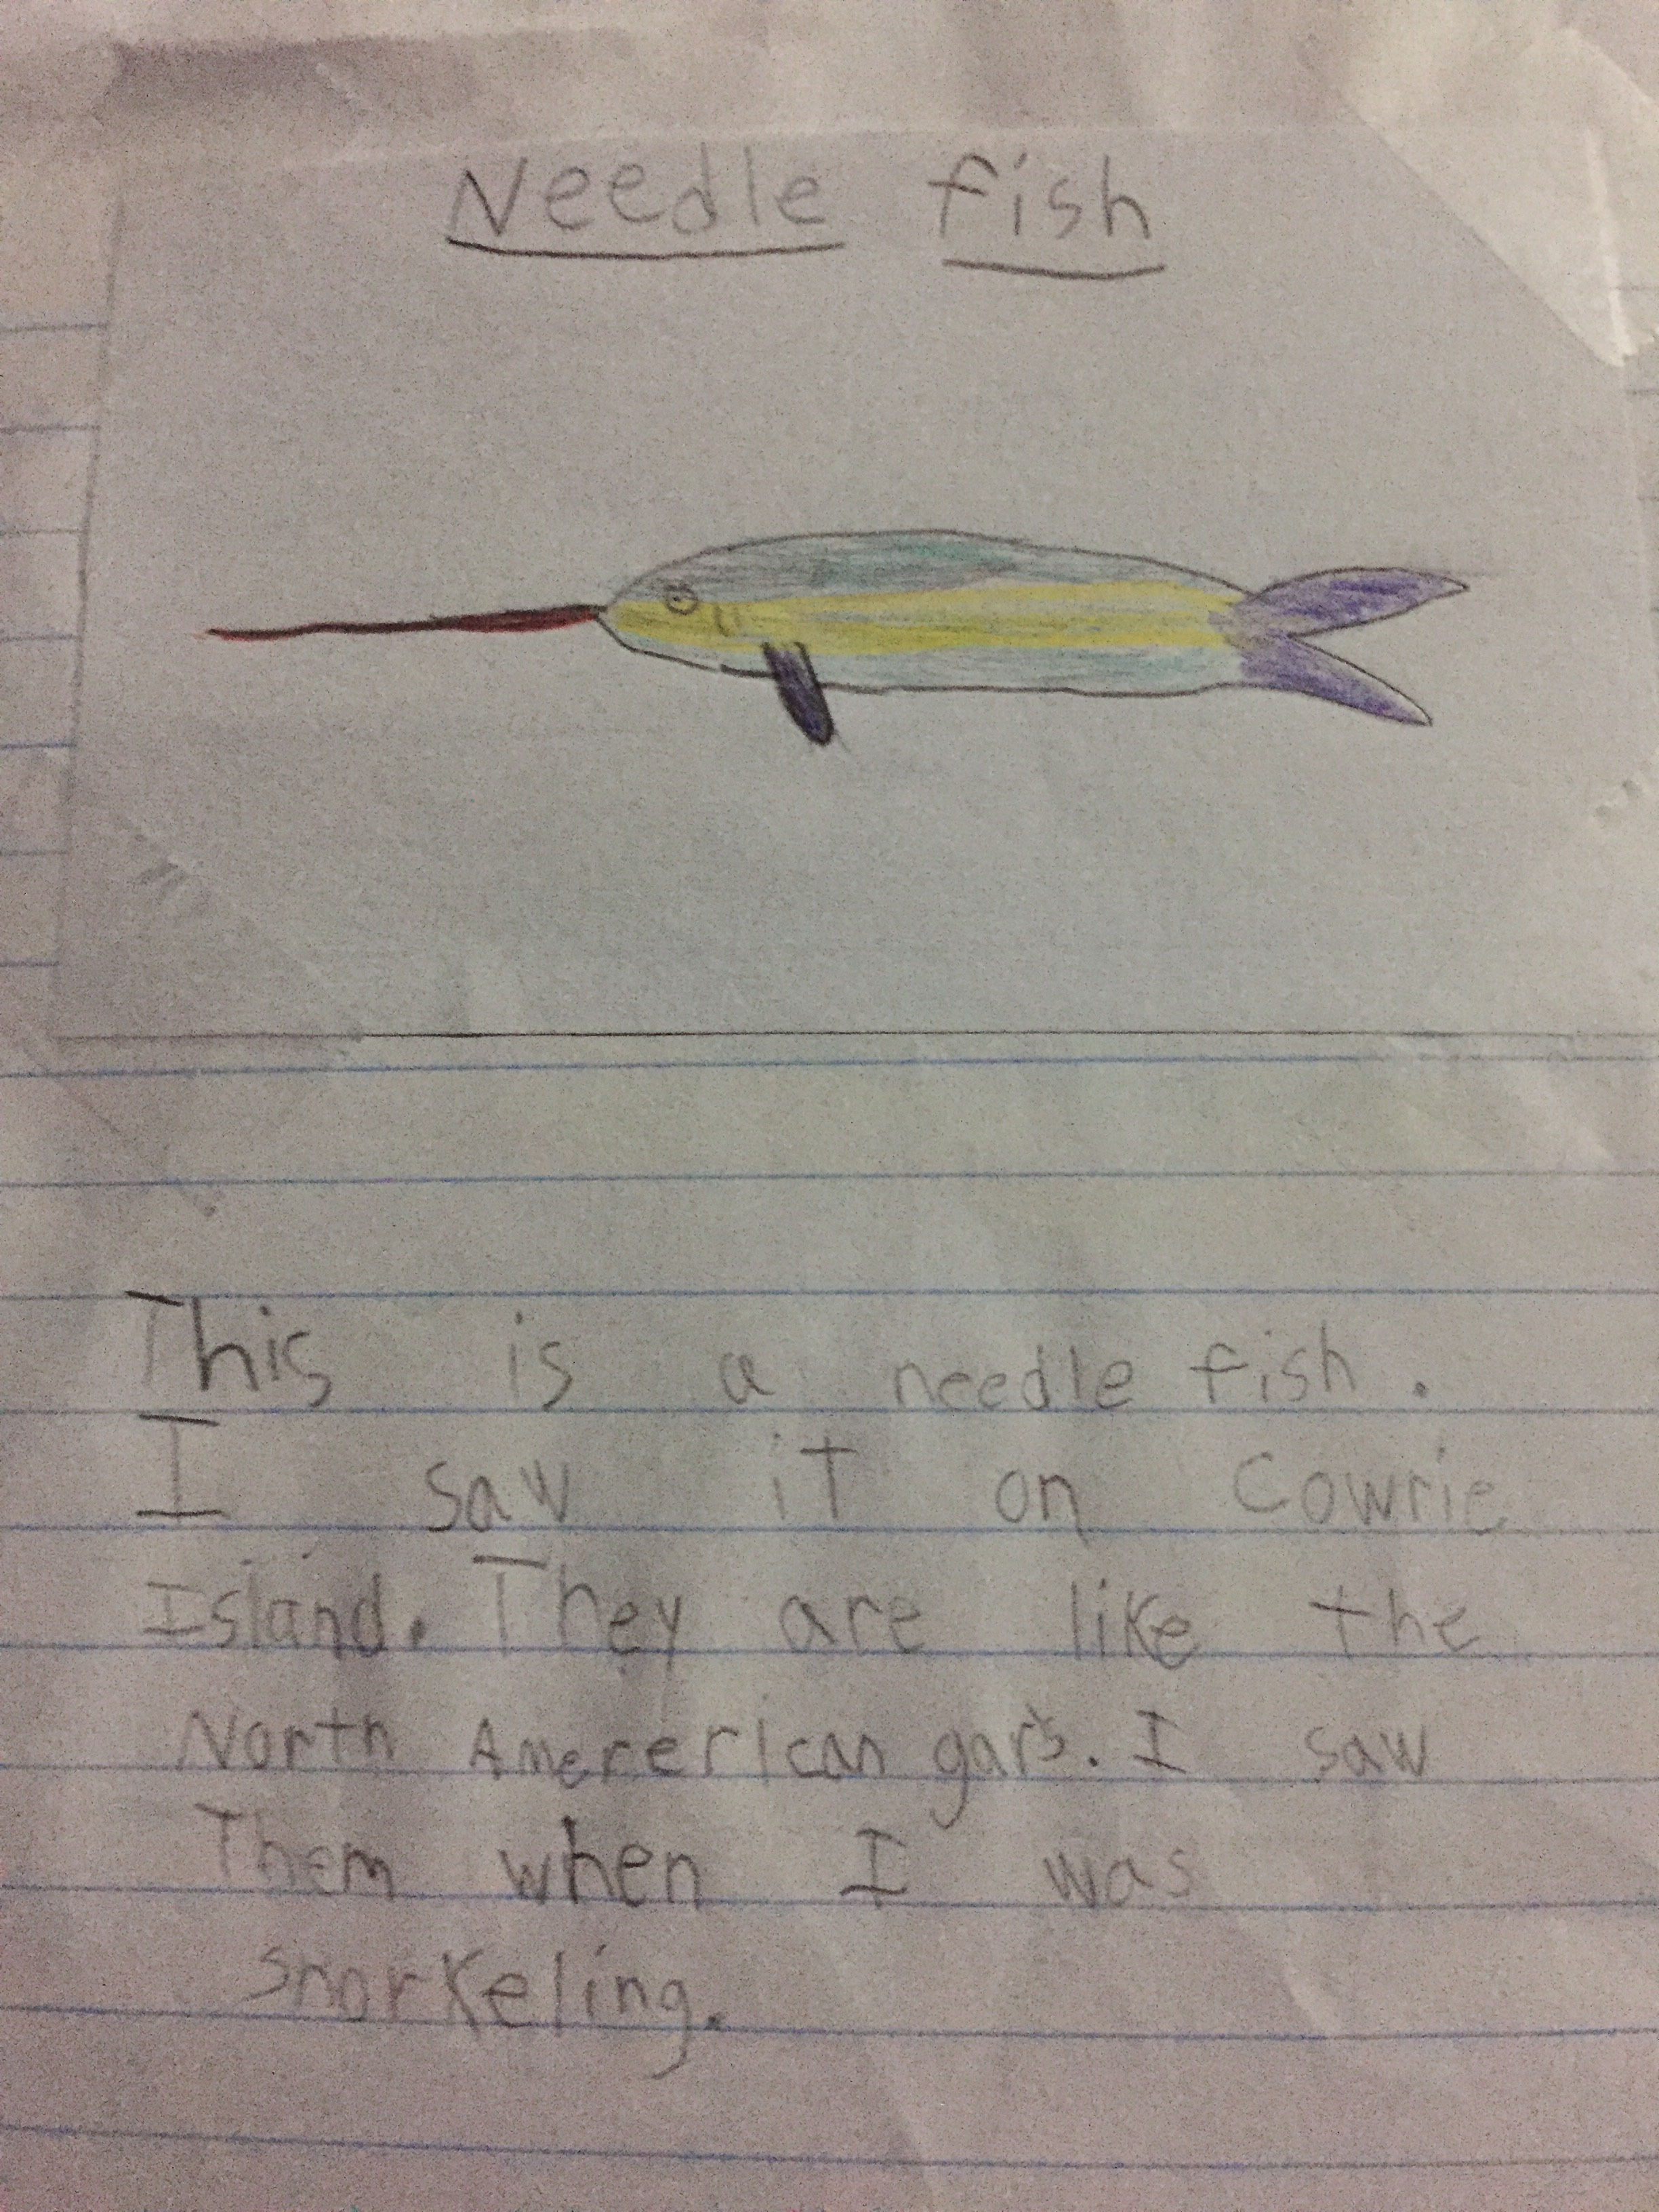 Needle fish
This is a needle fish.
I saw it on Cowrie
Island. They are like the
North Amerererican gar's. I saw
Them when I was
snorkeling.